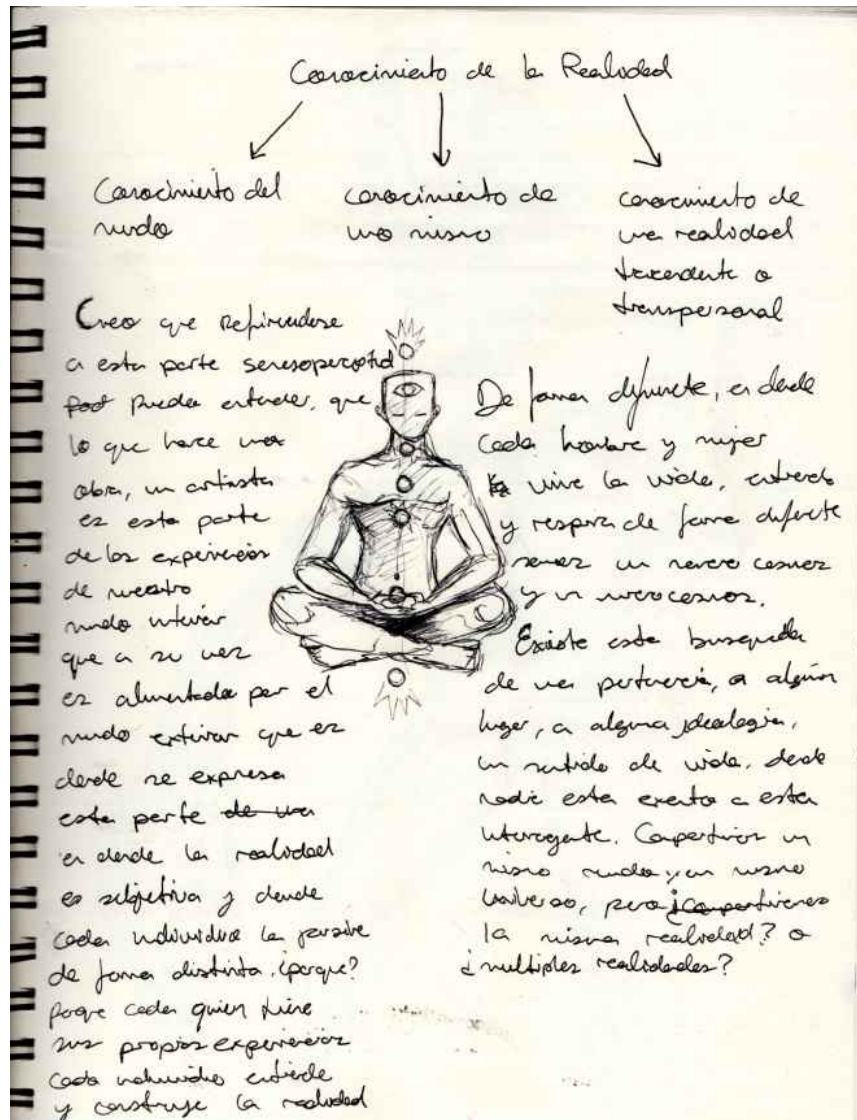 Conocimiento de la Realidad
Conocimiento del
mundo
conocimiento de
uno mismo
conocimiento de
una realidad
trascendente o
transpersonal
Creo que Refiriendose
a esta parte
Puedo entender, que
lo que hace una
obra, un artista
es esta parte
de las experiencias
de nuestro
mundo interior
que a su vez
es alimentada por el
mundo exterior que es
donde se expresa
esta parte de una
en donde la realidad
es subjetiva y donde
cada individuo la
de forma distinta. ¿porque?
Porque cada quien tiene
sus propias experiencias
cada individuo entiende
y construye la realidad
De forma diferente, en donde
cada hombre y mujer
vive la vida, entiende
y respira de forma diferente
somos un macro cosmos
y un microcosmos.
Existe esta busqueda
de una pertenencia, a algún
lugar, a alguna ideologia,
un sentido de vida, donde
nadie esta exento a esta
interrogante. Compartimos un
mismo mundo y un mismo
universo, pero ¿compartiremos
la misma realidad? o
¿multiples realidades?